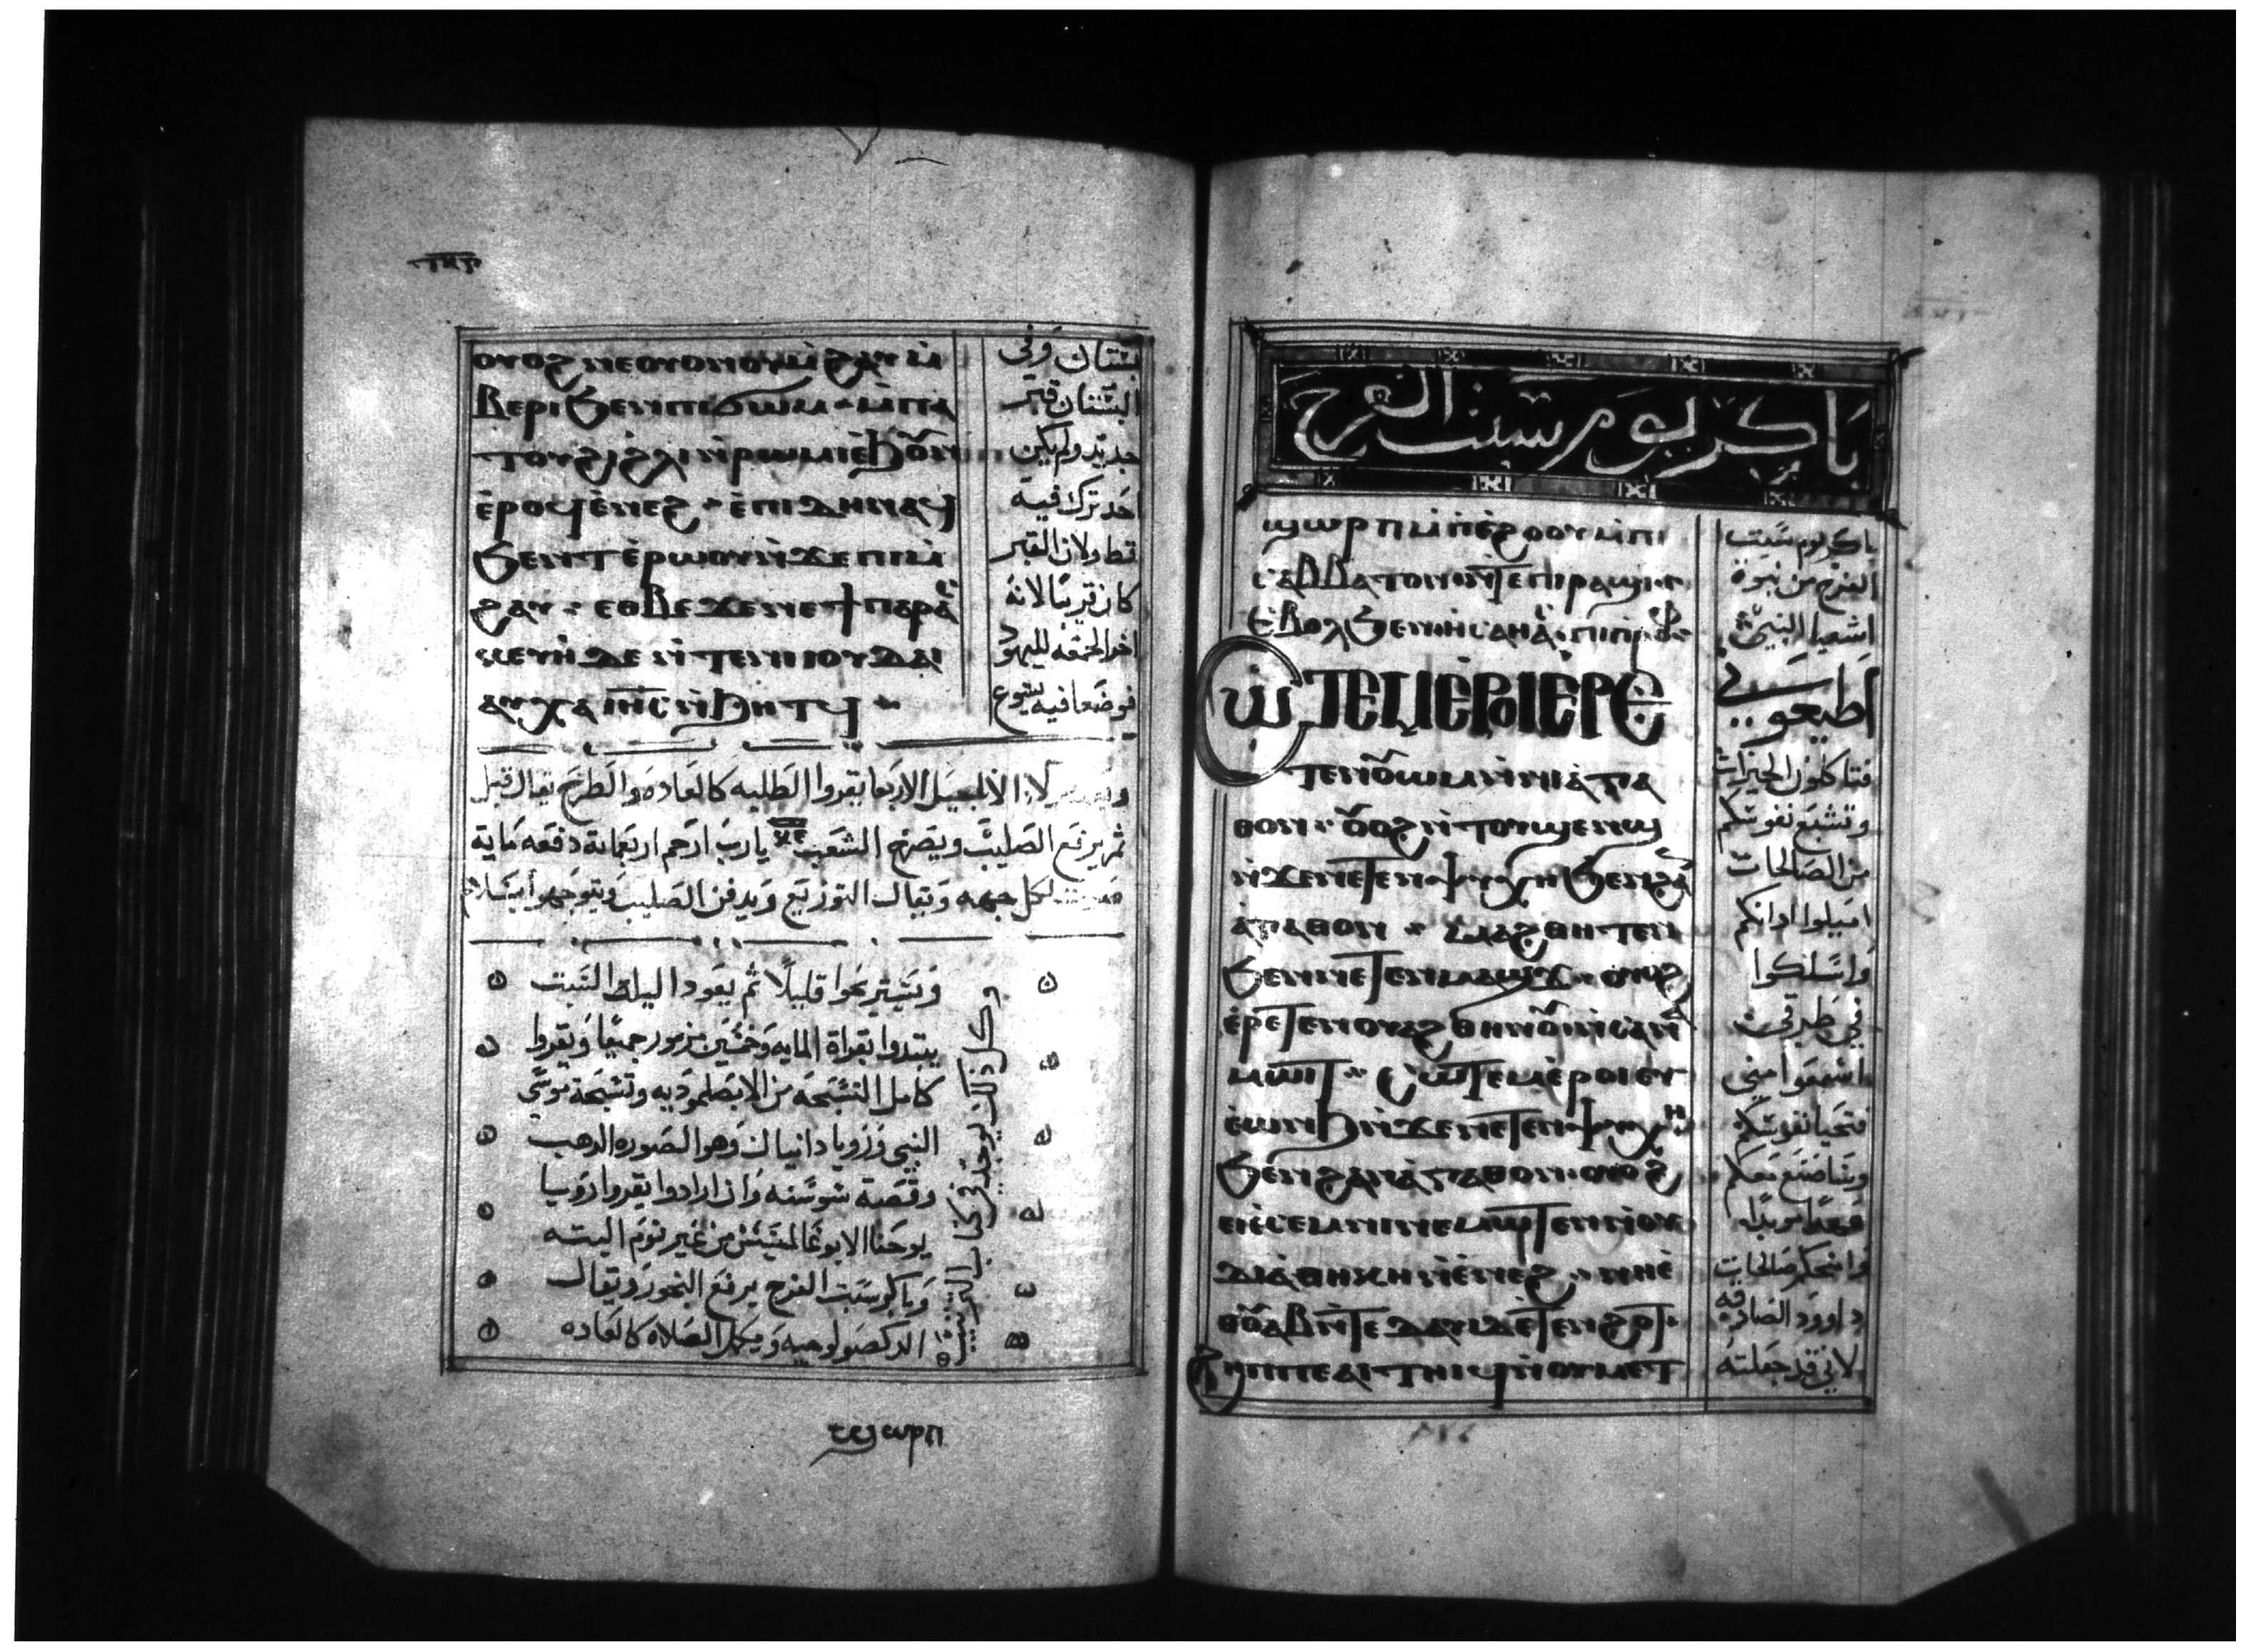 ⲟⲩⲟϩ ⲛⲉⲟⲩⲟⲛⲟⲩⲙ̀ϩⲁⲩ ⲙ̀
ⲃⲉⲣⲓ ϧⲉⲛⲡⲓϭⲱⲙ ⲙ̀ⲡⲁ
ⲧⲟⲩϩⲓ ϩ̀ⲗⲓ ⲛ̀ⲣⲱⲙⲓ ⲉ̀ϧⲟⲩⲛ
ⲉ̀ⲣⲟϥ ⲉ̀ⲛⲉϩ
ϩⲁⲩ ⲉⲑⲃⲉ ϫⲉ ⲛⲉ ϯⲡⲁⲣⲁ
ⲥⲕⲉⲩⲏ ⲇⲉ ⲛ̀ⲧⲉ ⲛⲓⲓⲟⲩⲇⲁⲓ
ⲁⲩⲭⲁ ⲓⲏⲥ ⲛ̀ϧⲏⲧϥ
بستان وفي
البستان قبر
جديد ولم يكن
احد ترك فيه
قط ولان القبر
كان قريبا لانه
اخر الجمعه لليهود
فوضعا فيه يسوع
الاربعا يقروا الطلبه كالعاده والطرح يقال قبل
ثم يرفع الصليب ويصرخ الشعب يارب ارحم اربعماية دفعه ماية
لكل جهه ويقال التوزيع ويدفن الصليب ويتوجهوا بسلام
ويستريحوا قليلا ثم يعودا ليلة السبت
يبتدوا بقراة المايه وخمسين مزمور جميعا ويقروا
كامل التسبحه من الابصلموديه وتسبحة موسى
النبي ورويا دانيال وهو الصوره الدهب
وقصة سوسنه وان ارادوا يقروا رويا
يوحنا الابوغالمسيس من غير نوم البته
وباكر سبت الفرح يرفع البخور ويقال
الدكصولوجيه ويكمل الصلاة كالعاده
ⲡϣⲱⲣⲡ
باكر يوم سبت الفرح
ϣⲱⲣⲡ ⲙ̀ⲡⲓⲉ̀ϩⲟⲟⲩ ⲙ̀ⲡⲓ
ⲥⲁⲃⲃⲁⲧⲟⲛ ⲛ̀ⲧⲉ ⲡⲓⲣⲁϣⲓ
ⲉⲃⲟⲗ ϧⲉⲛ ⲏⲥⲁⲏⲁⲥ ⲡⲓⲡⲣⲟⲫ
ⲥⲱⲧⲉⲙ ⲉ̀ⲣⲟⲓ ⲉⲣⲉ
ⲧⲉⲛⲟⲩⲱⲙ ⲛ̀ⲛⲓⲁ̀ⲅⲁ
ⲑⲟⲛ ⲟⲩⲟϩ ⲛ̀ⲧⲟⲩ
ⲛ̀ϫⲉ ⲛⲉⲧⲉⲛⲯⲩⲭⲏ ϧⲉⲛ ϩⲁⲛ
ⲁ̀ⲅⲁⲑⲟⲛ ⲙⲁϩⲑⲏⲧⲉⲛ
ϧⲉⲛ ⲛⲉⲧⲉⲛⲙⲁϣϫ ⲟⲩⲟϩ
ⲉ̀ⲣⲉⲧⲉⲛⲟⲩⲁϩ ⲑⲏⲛⲟⲩ ⲛ̀ⲥⲁ ⲛⲁ
ⲙⲱⲓⲧ ⲥⲱⲧⲉⲙ ⲉ̀ⲣⲟⲓ ⲉⲩ
ⲉ̀ⲱⲛϧ ⲛ̀ϫⲉ ⲛⲉⲧⲉⲛⲯⲩⲭⲏ
ϧⲉⲛ ϩⲁⲛⲁ̀ⲅⲁⲑⲟⲛ ⲟⲩⲟϩ
ⲉⲓⲉ̀ⲥⲉⲙⲛⲓ ⲛⲉⲙⲱⲧⲉⲛ ⲛ̀ⲟⲩ
ⲇⲓⲁ̀ⲑⲏⲕⲏ ⲛ̀ⲉ̀ⲛⲉϩ ⲛⲏⲉ̀
ⲑⲟⲩⲁⲃ ⲛ̀ⲧⲉ ⲇⲁⲩⲓⲇ ⲉ̀ⲧⲉⲛϩⲟⲧ
ϩⲏⲡⲡⲉ ⲁⲓⲧⲏⲓϥ ⲛ̀ⲟⲩⲙⲉⲧ
باكر يوم سبت
الفرح من نبوة
اشعيا النبي
اطيعوني
فتاكلون الخيرات
وتشبع نفوسكم
من الصالحات
اميلوا ادانكم
واسلكوا
في طرقي
اسمعوا مني
فتحيا نفوسكم
معكم
عهدا موبدا
وامنحكم صالحات
داوود الصادقه
لاني قد جعلته